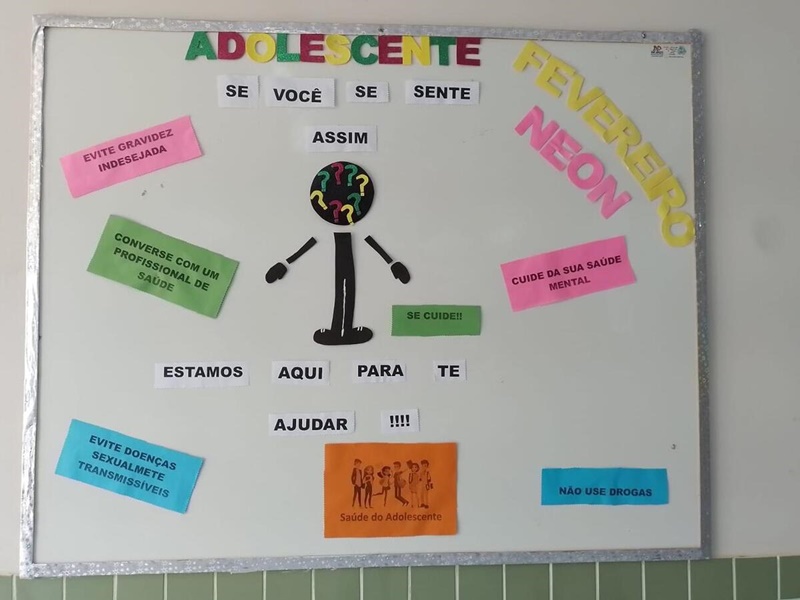 ADOLESCENTE
FEVEREIRO
NEON
SE VOCÊ SE SENTE
ASSIM
EVITE GRAVIDEZ
INDESEJADA
CONVERSE COM UM
PROFISSIONAL DE
SAÚDE
CUIDE DA SUA SAÚDE
MENTAL
SE CUIDE!!
ESTAMOS AQUI PARA TE
AJUDAR !!!!
EVITE DOENÇAS
SEXUALMETE
TRANSMISSÍVEIS
Saúde do Adolescente
NÃO USE DROGAS